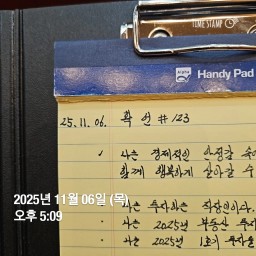 TIME STAMP
Handy Pad
25.11.06. 확언 #123
나는 경제적인 안정감 속에
함께 행복하게 살아갈 수
나는 투자하는 직장인이다.
나는 2025년 부동산 투
나는 2025년 1호기 투자를
2025년 11월 06일 (목)
오후 5:09